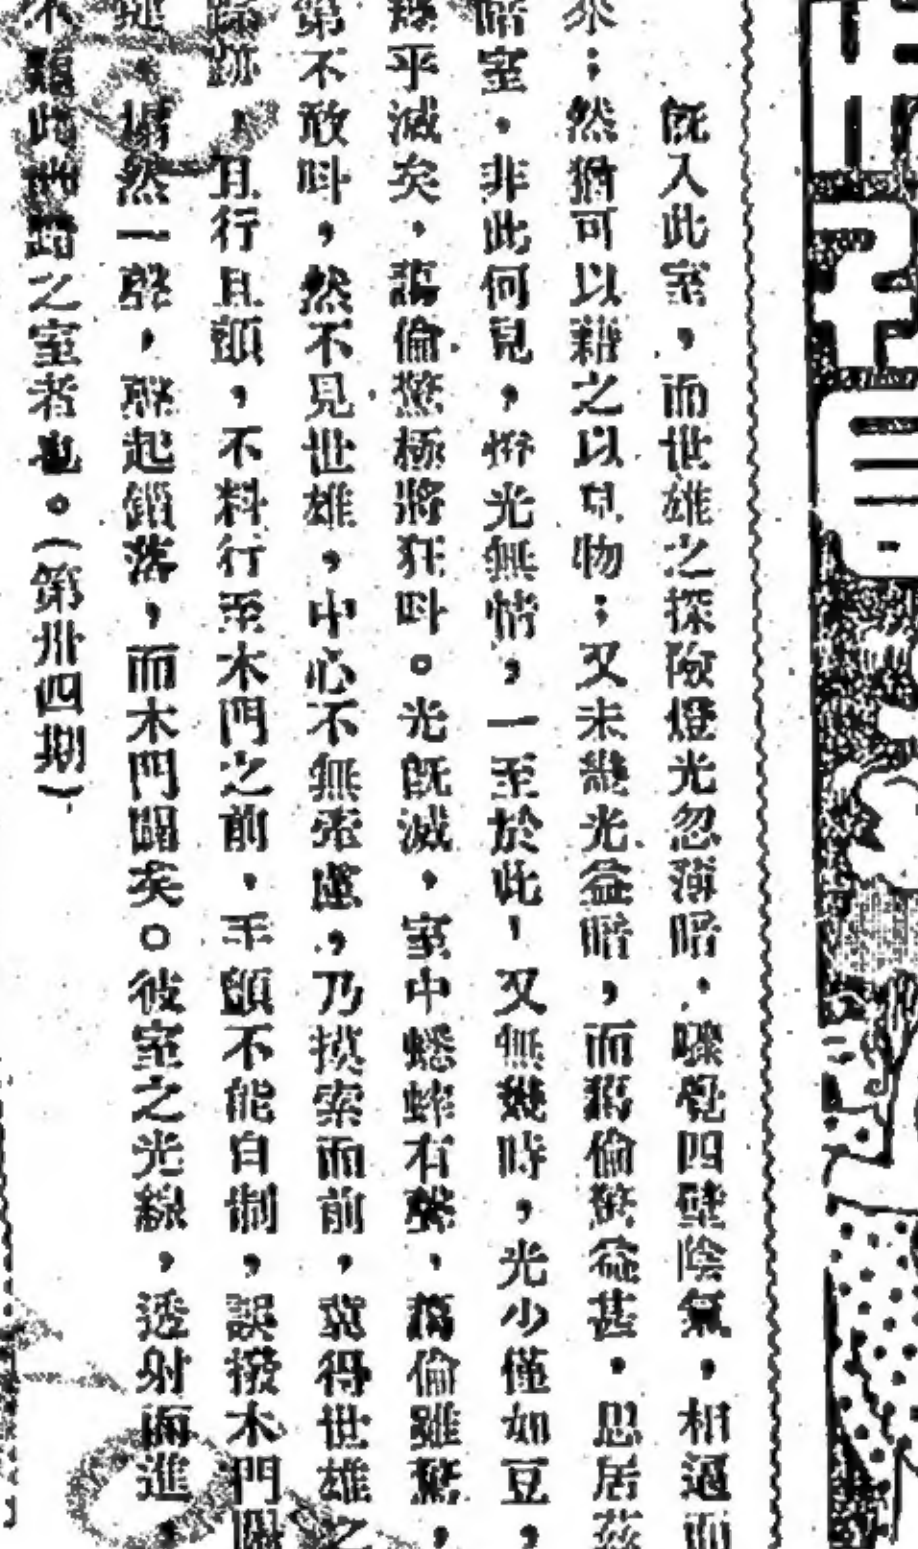 既入此室，而世雄之探險燈光忽薄暗，驟覺四壁陰氣，相逼而
來；然猶可以藉之以見物；又未幾光益暗，而萬倫驚益甚，思居茲
暗室，非此何見，燈光無情，一至於此！又無幾時，光少僅如豆，
平滅矣，萬倫驚極將狂呌。光既滅，室中蟋蟀有聲，萬倫雖驚，
第不敢呌，然不見世雄，中心不無焦慮，乃摸索而前，冀得世雄之
踪跡，且行且顫，不料行至木門之前，手顫不能自制，誤撥木門
然一聲，聲起鎖落，而木門闢矣。彼室之光線，透射而進，
不 此 之室者也。（第卅四期）